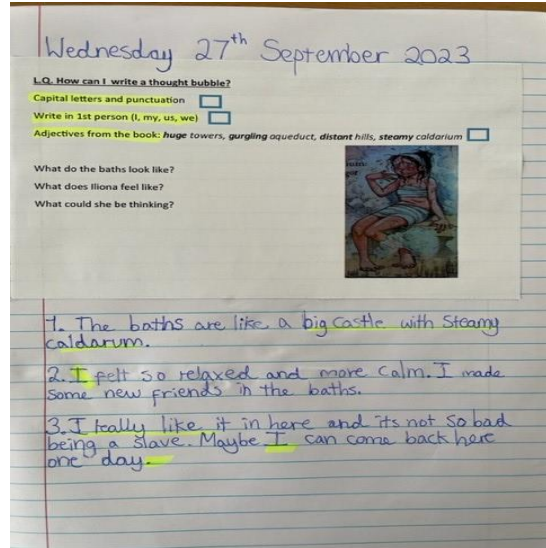 Wednesday 27th September 2023
L.Q. How can I write a thought bubble?
Capital letters and punctuation
Write in 1st person (I, my, us, we)
Adjectives from the book: huge towers, gurgling aqueduct, distant hills, steamy caldarium
What do the baths look like?
What does Iliona feel like?
What could she be thinking?
1. The baths are like a big castle with Steamy
caldarum.
2. I felt so relaxed and more calm. I made
some new friends in the baths.
3. I really like it in here and its not so bad
being a slave. Maybe I can come back here
one day.